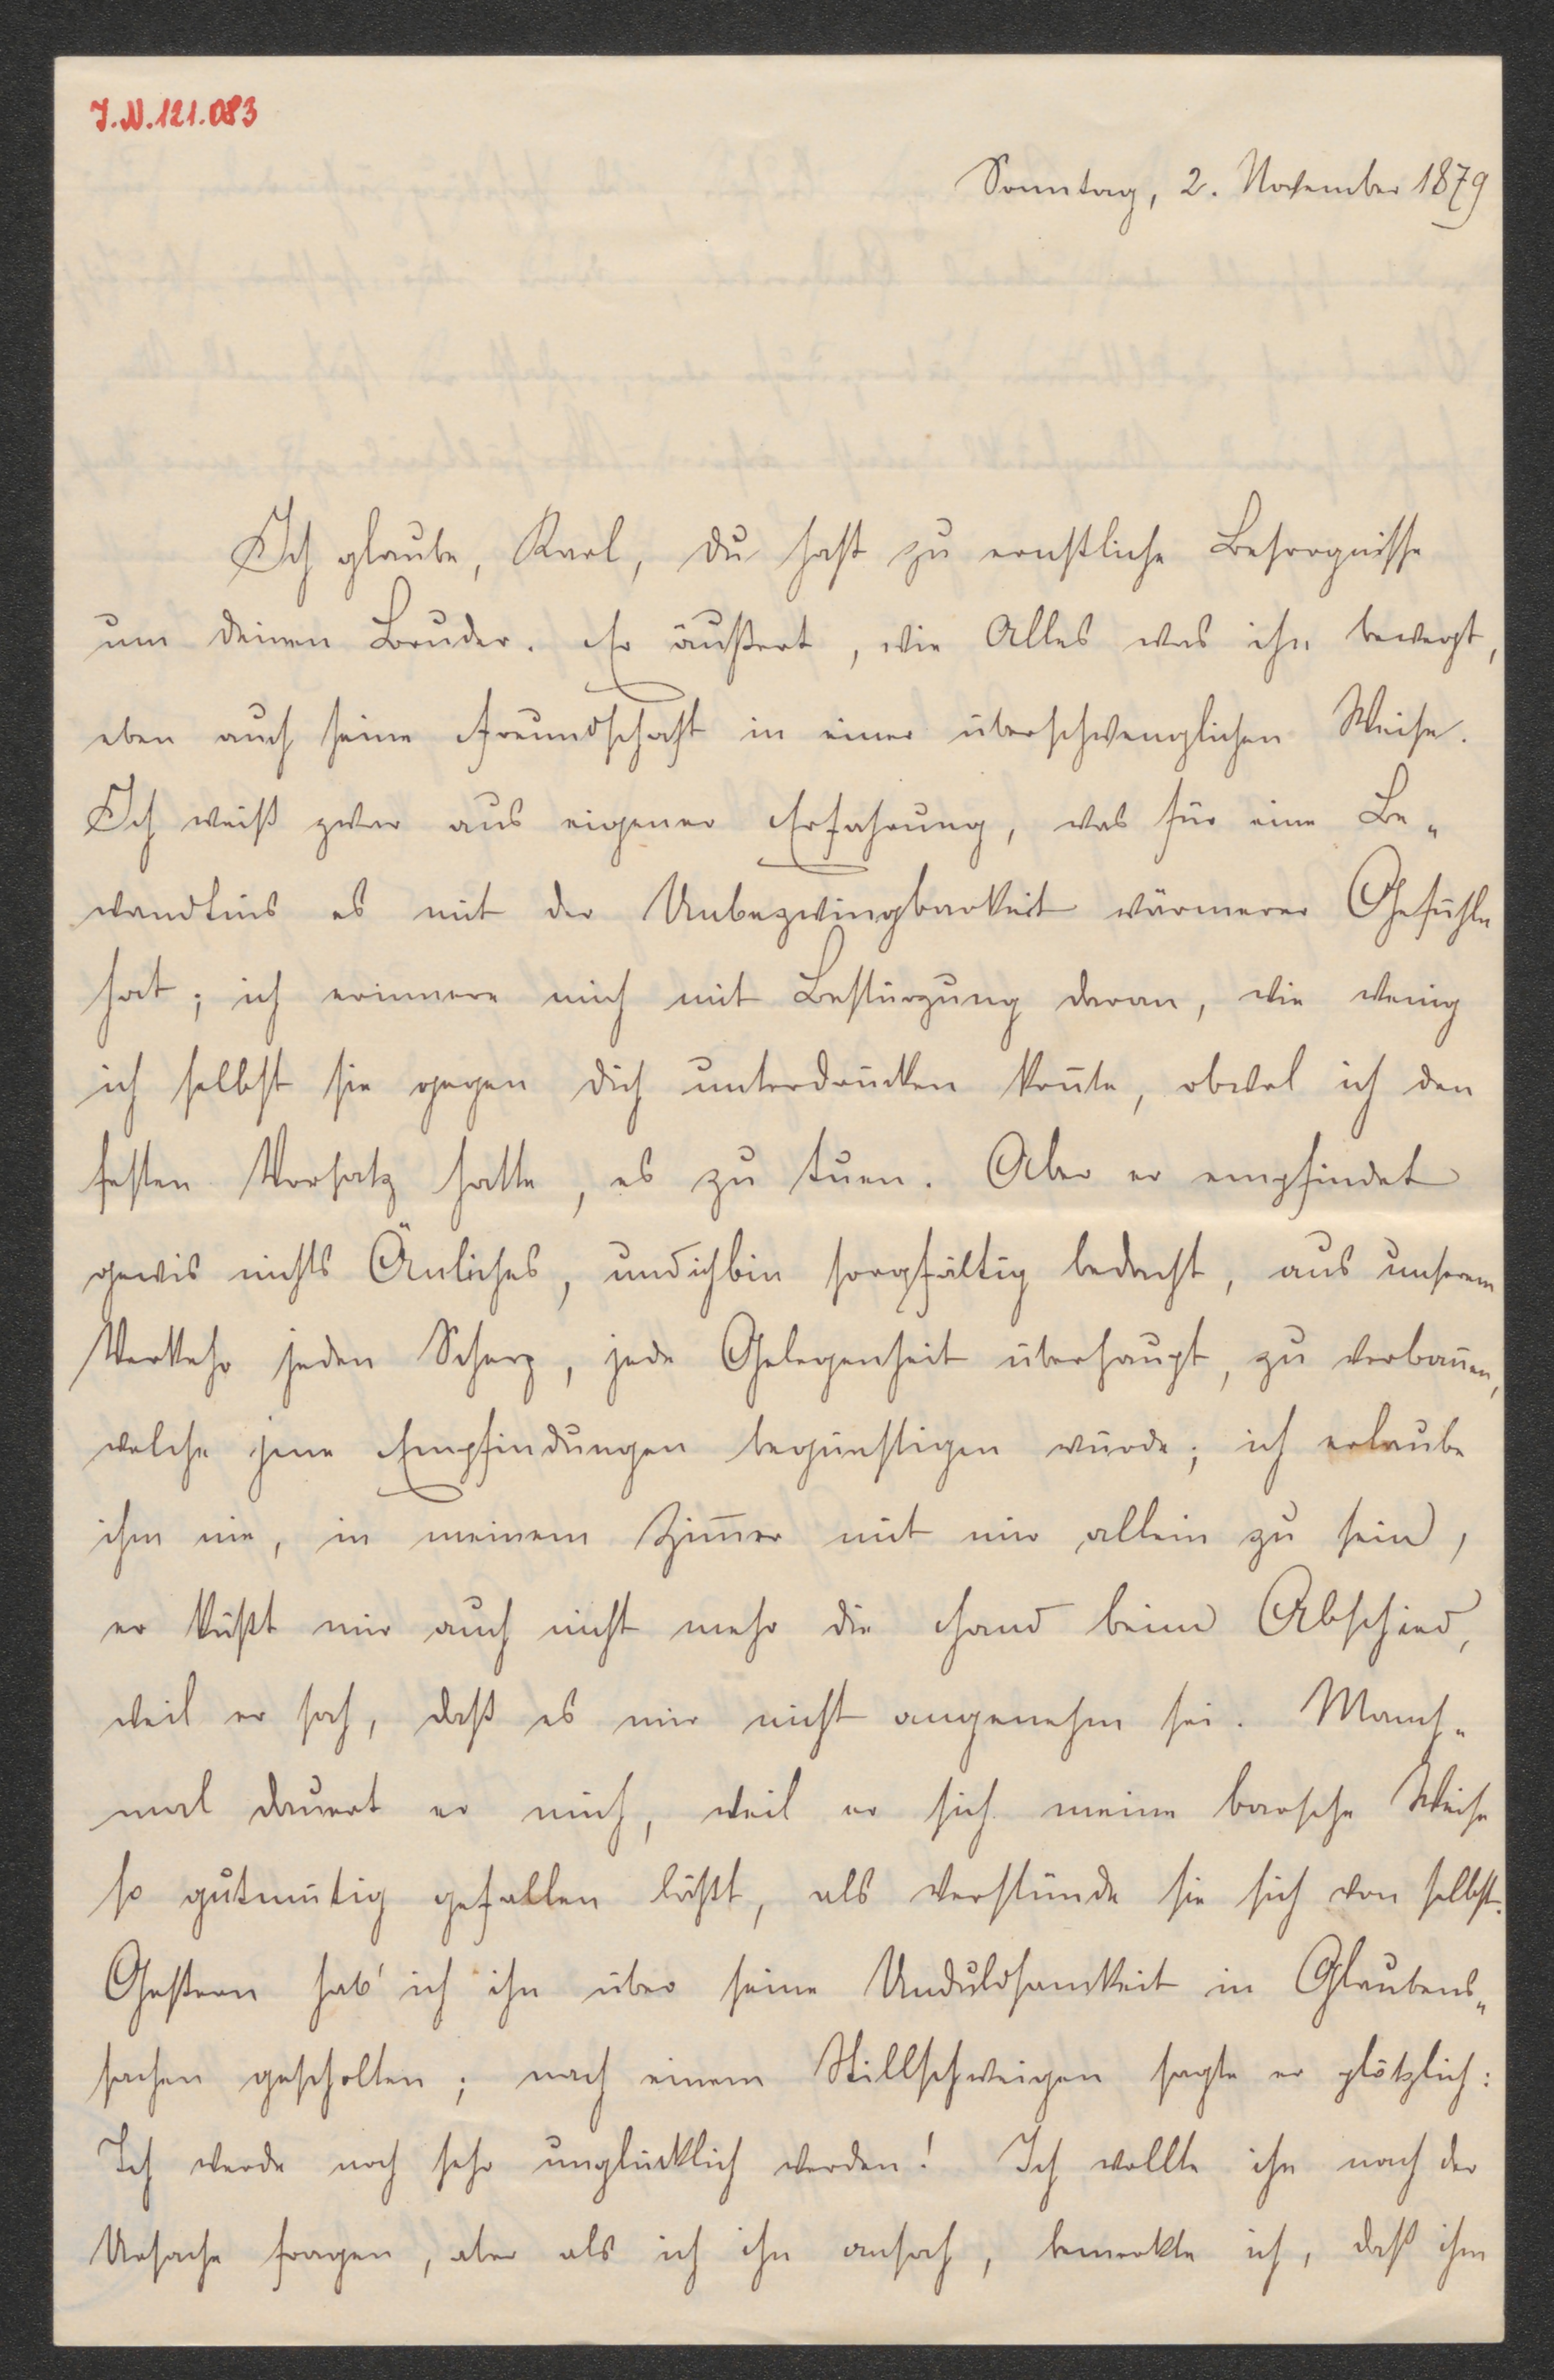 I.N.121.083
Sonntag, 2. November 1879
Ich glaube, Karl, du hast zu ernstliche Besorgnisse
um deinen Bruder. Er äußert, wie Alles was ihn bewegt,
eben auch seine Freundschaft in einer überschwenglichen Weise.
Ich weiß zwar aus eigener Erfahrung, was für eine Be-
wandtnis es mit der Unbezwingbarkeit wärmerer Gefühle
hat; ich erinnere mich mit Bestürzung daran, wie wenig
ich selbst sie gegen dich unterdrücken konn̄te, obwol ich den
festen Vorsatz hatte, es zu tuen. Aber er empfindet
gewis nichts Änliches, und ich bin sorgfältig bedacht, aus unserem
Verkehr jeden Scherz, jede Gelegenheit überhaupt, zu verban̄en,
welche jene Empfindungen begünstigen würde; ich erlaube
ihm nie, in meinem Zim̄er mit mir allein zu sein,
er küßt mir auch nicht mehr die Hand beim Abschied,
weil er sah, daß es mir nicht angenehm sei. Manch-
mal dauert er mich, weil er sich meine barsche Weise
so gutmütig gefallen läßt, als verstünde sie sich von selbst.
Gestern hab' ich ihn über seine Unduldsamkeit in Glaubens-
sachen gescholten; nach einem Stillschweigen sagte er plötzlich:
Ich werde noch sehr unglücklich werden! Ich wollte ihn nach der
Ursache fragen, aber als ich ihn ansah, bemerkte ich, daß ihm